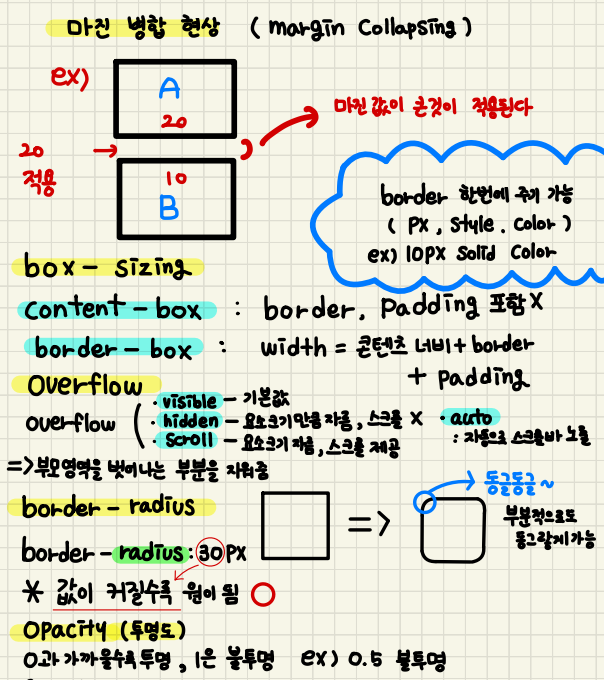 마진 병합 현상 (margin Collapsing)
ex)
A
20
마진값이 큰것이 적용된다
20
적용
10
B
border 한번에 주기 가능
(PX, Style, Color)
ex) 10PX Solid Color
box - sizing
content - box : border, Padding 포함X
border - box : width = 콘텐츠 너비 + border
+ padding
Overflow
overflow ( · visible - 기본값
· hidden - 요소크기만큼 자름, 스크롤 X · auto
· scroll - 요소크기 자름, 스크롤 제공 : 자동으로 스크롤바 노출
=> 부모영역을 벗어나는 부분을 지워줌
border - radius
=>
동글동글~
부분적으로도
동그랗게 가능
border - radius : 30PX
* 값이 커질수록 원이 됨
Opacity (투명도)
0과 가까울수록 투명, 1은 불투명 ex) 0.5 불투명